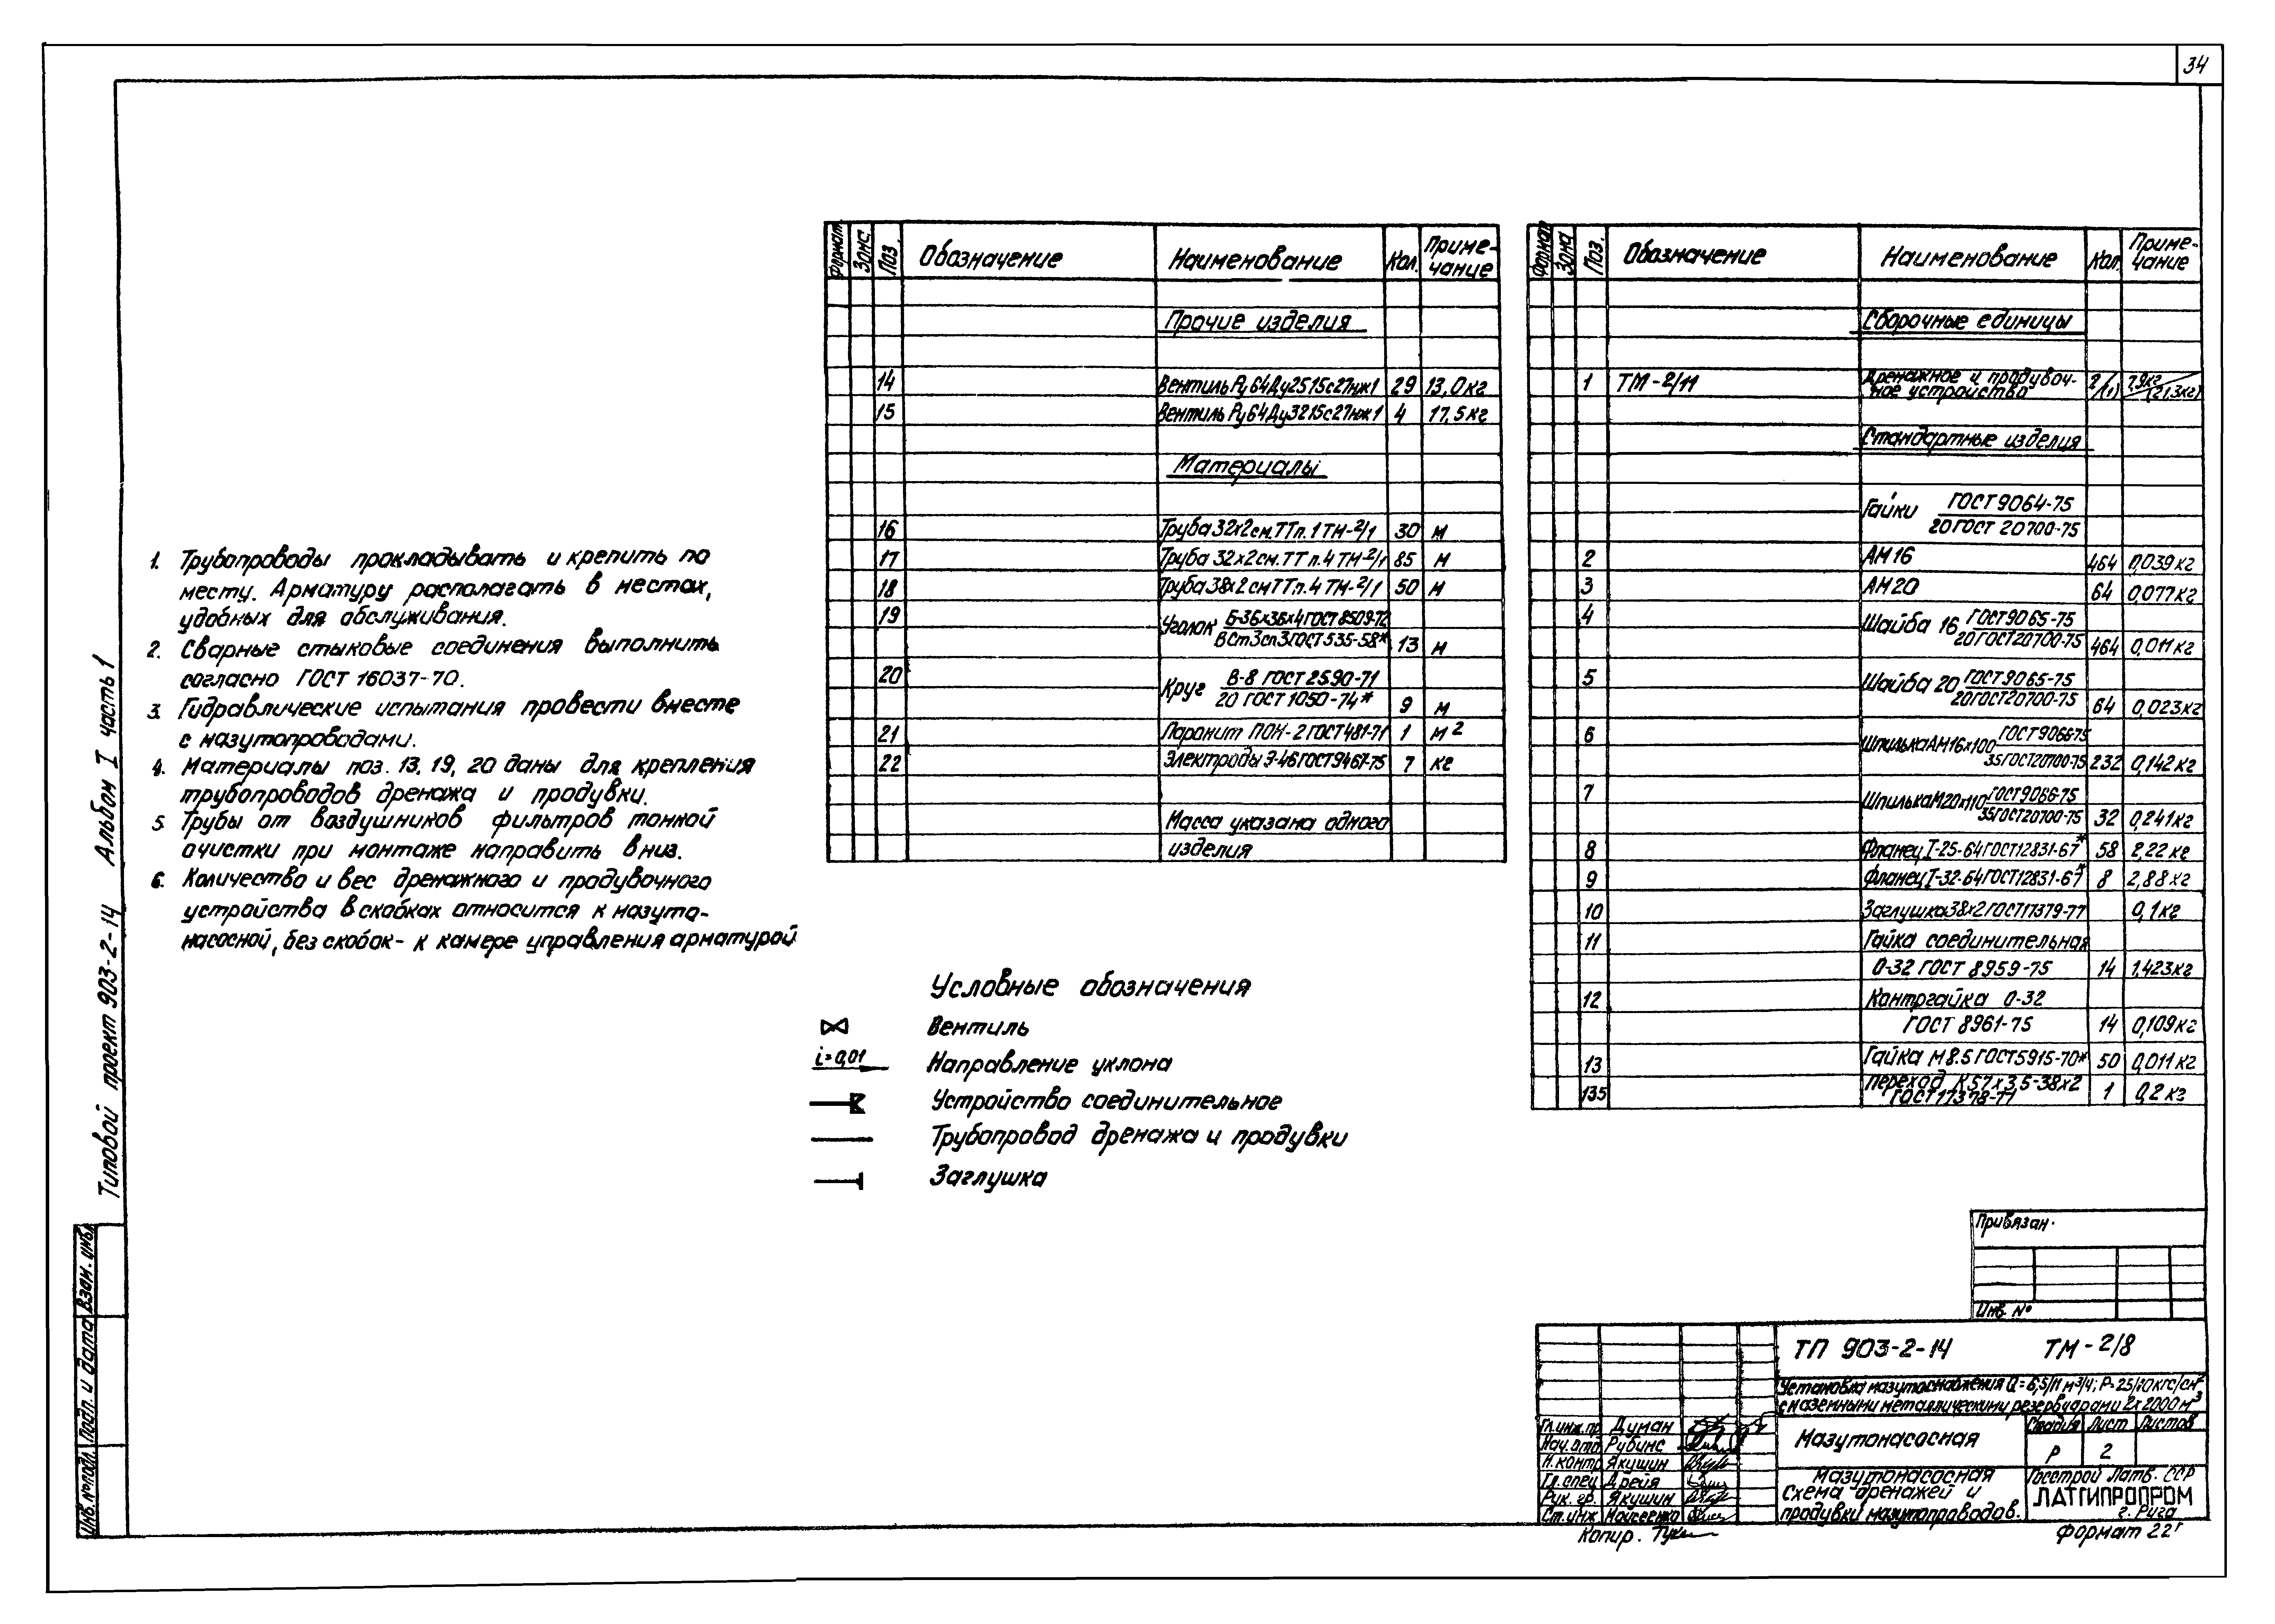 34
Типовой проект 903-2-14 Альбом I часть 1
1. Трубопроводы прокладывать и крепить по
месту. Арматуру располагать в местах,
удобных для обслуживания.
2. Сварные стыковые соединения выполнить
согласно ГОСТ 16037-70.
3. Гидравлические испытания провести вместе
с мазутопроводами.
4. Материалы поз. 13, 19, 20 даны для крепления
трубопроводов дренажа и продувки.
5. Трубы от воздушников фильтров тонкой
очистки при монтаже направить вниз.
6. Количество и вес дренажного и продувочного
устройства в скобках относится к мазуто-
насосной, без скобок- к камере управления арматурой
Формат Зона Поз. Обозначение Наименование Кол. Приме-
чание
Прочие изделия
14 Вентиль Ру64Ду25 15с27нж1 29 13,0кг
15 Вентиль Ру64Ду32 15с27нж1 4 17,5кг
Материалы
16 Труба 32х2 см. ТТ п. 1 ТМ-2/1 30 м
17 Труба 32х2 см. ТТ п. 4 ТМ-2/1 85 м
18 Труба 38х2 см ТТ п. 4 ТМ-2/1 50 м
19 Уголок Б-36х36х4 ГОСТ 8509-72
ВСт3сп3 ГОСТ 535-58* 13 м
20 Круг В-8 ГОСТ 2590-71
20 ГОСТ 1050-74* 9 м
21 Паронит ПОН-2 ГОСТ 481-71 1 м2
22 Электроды Э-46 ГОСТ 9467-75 7 кг
Масса указана одного
изделия
Формат Зона Поз. Обозначение Наименование Кол. Приме-
чание
Сборочные единицы
1 ТМ-2/11 Дренажное и продувоч- 2/ 7,9кг/
ное устройство (1) (21,3кг)
Стандартные изделия
Гайки ГОСТ 9064-75
20 ГОСТ 20700-75
2 АМ16 464 0,039кг
3 АМ20 64 0,077кг
4 Шайба 16 ГОСТ 9065-75
20 ГОСТ 20700-75 464 0,011кг
5 Шайба 20 ГОСТ 9065-75
20 ГОСТ 20700-75 64 0,023кг
6 Шпилька АМ16х100 ГОСТ 9066-75
35 ГОСТ 20700-75 232 0,142кг
7 Шпилька М20х110 ГОСТ 9066-75
35 ГОСТ 20700-75 32 0,241кг
8 Фланец I-25-64 ГОСТ 12831-67* 58 2,22кг
9 Фланец I-32-64 ГОСТ 12831-67* 8 2,88кг
10 Заглушка 38х2 ГОСТ 17379-77 0,1кг
11 Гайка соединительная
О-32 ГОСТ 8959-75 14 1.423кг
12 Контргайка О-32
ГОСТ 8961-75 14 0,109кг
13 Гайка М8.5 ГОСТ 5915-70* 50 0,011кг
135 Переход К57х3,5-38х2
ГОСТ 17378-77 1 0,2кг
Условные обозначения
Вентиль
i=0,01 Направление уклона
Устройство соединительное
Трубопровод дренажа и продувки
Заглушка
Привязан
Инв. №
ТП 903-2-14 ТМ-2/8
Установка мазутоснабжения Q=6,5/11 м³/ч; P=25/10кгс/см²
с наземными металлическими резервуарами 2х2000м³
Гл.инж.пр. Думан
Нач.отд. Рубинс
Н.контр. Якушин
Гл.спец. Дрейя
Рук.гр. Якушин
Ст.инж.
Мазутонасосная
Стадия Лист Листов
Р 2
Мазутонасосная
Схема дренажей и
продувки мазутопроводов.
Госстрой Латв. ССР
ЛАТГИПРОПРОМ
г. Рига
Копир.
Формат 22г
Инв. № подл. Подп. и дата Взам. инв.